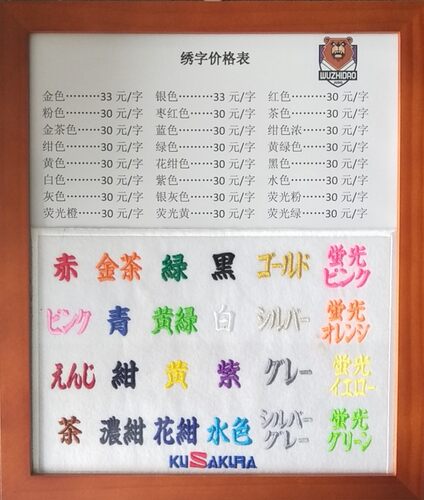 绣字价格表
WUZHIDAO
金色········33 元/字 银色········33 元/字 红色········30 元/字
粉色········30 元/字 枣红色······30 元/字 茶色········30 元/字
金茶色······30 元/字 蓝色········30 元/字 绀色浓······30 元/字
绀色········30 元/字 绿色········30 元/字 黄绿色······30 元/字
黄色········30 元/字 花绀色······30 元/字 黑色········30 元/字
白色········30 元/字 紫色········30 元/字 水色········30 元/字
灰色········30 元/字 银灰色······30 元/字 荧光粉······30 元/字
荧光橙······30 元/字 荧光黄······30 元/字 荧光绿······30 元/字
赤 金茶 緑 黒 ゴールド 蛍光ピンク
ピンク 青 黄緑 白 シルバー 蛍光オレンジ
えんじ 紺 黄 紫 グレー 蛍光イエロー
茶 濃紺 花紺 水色 シルバーグレー 蛍光グリーン
KUSAKURA